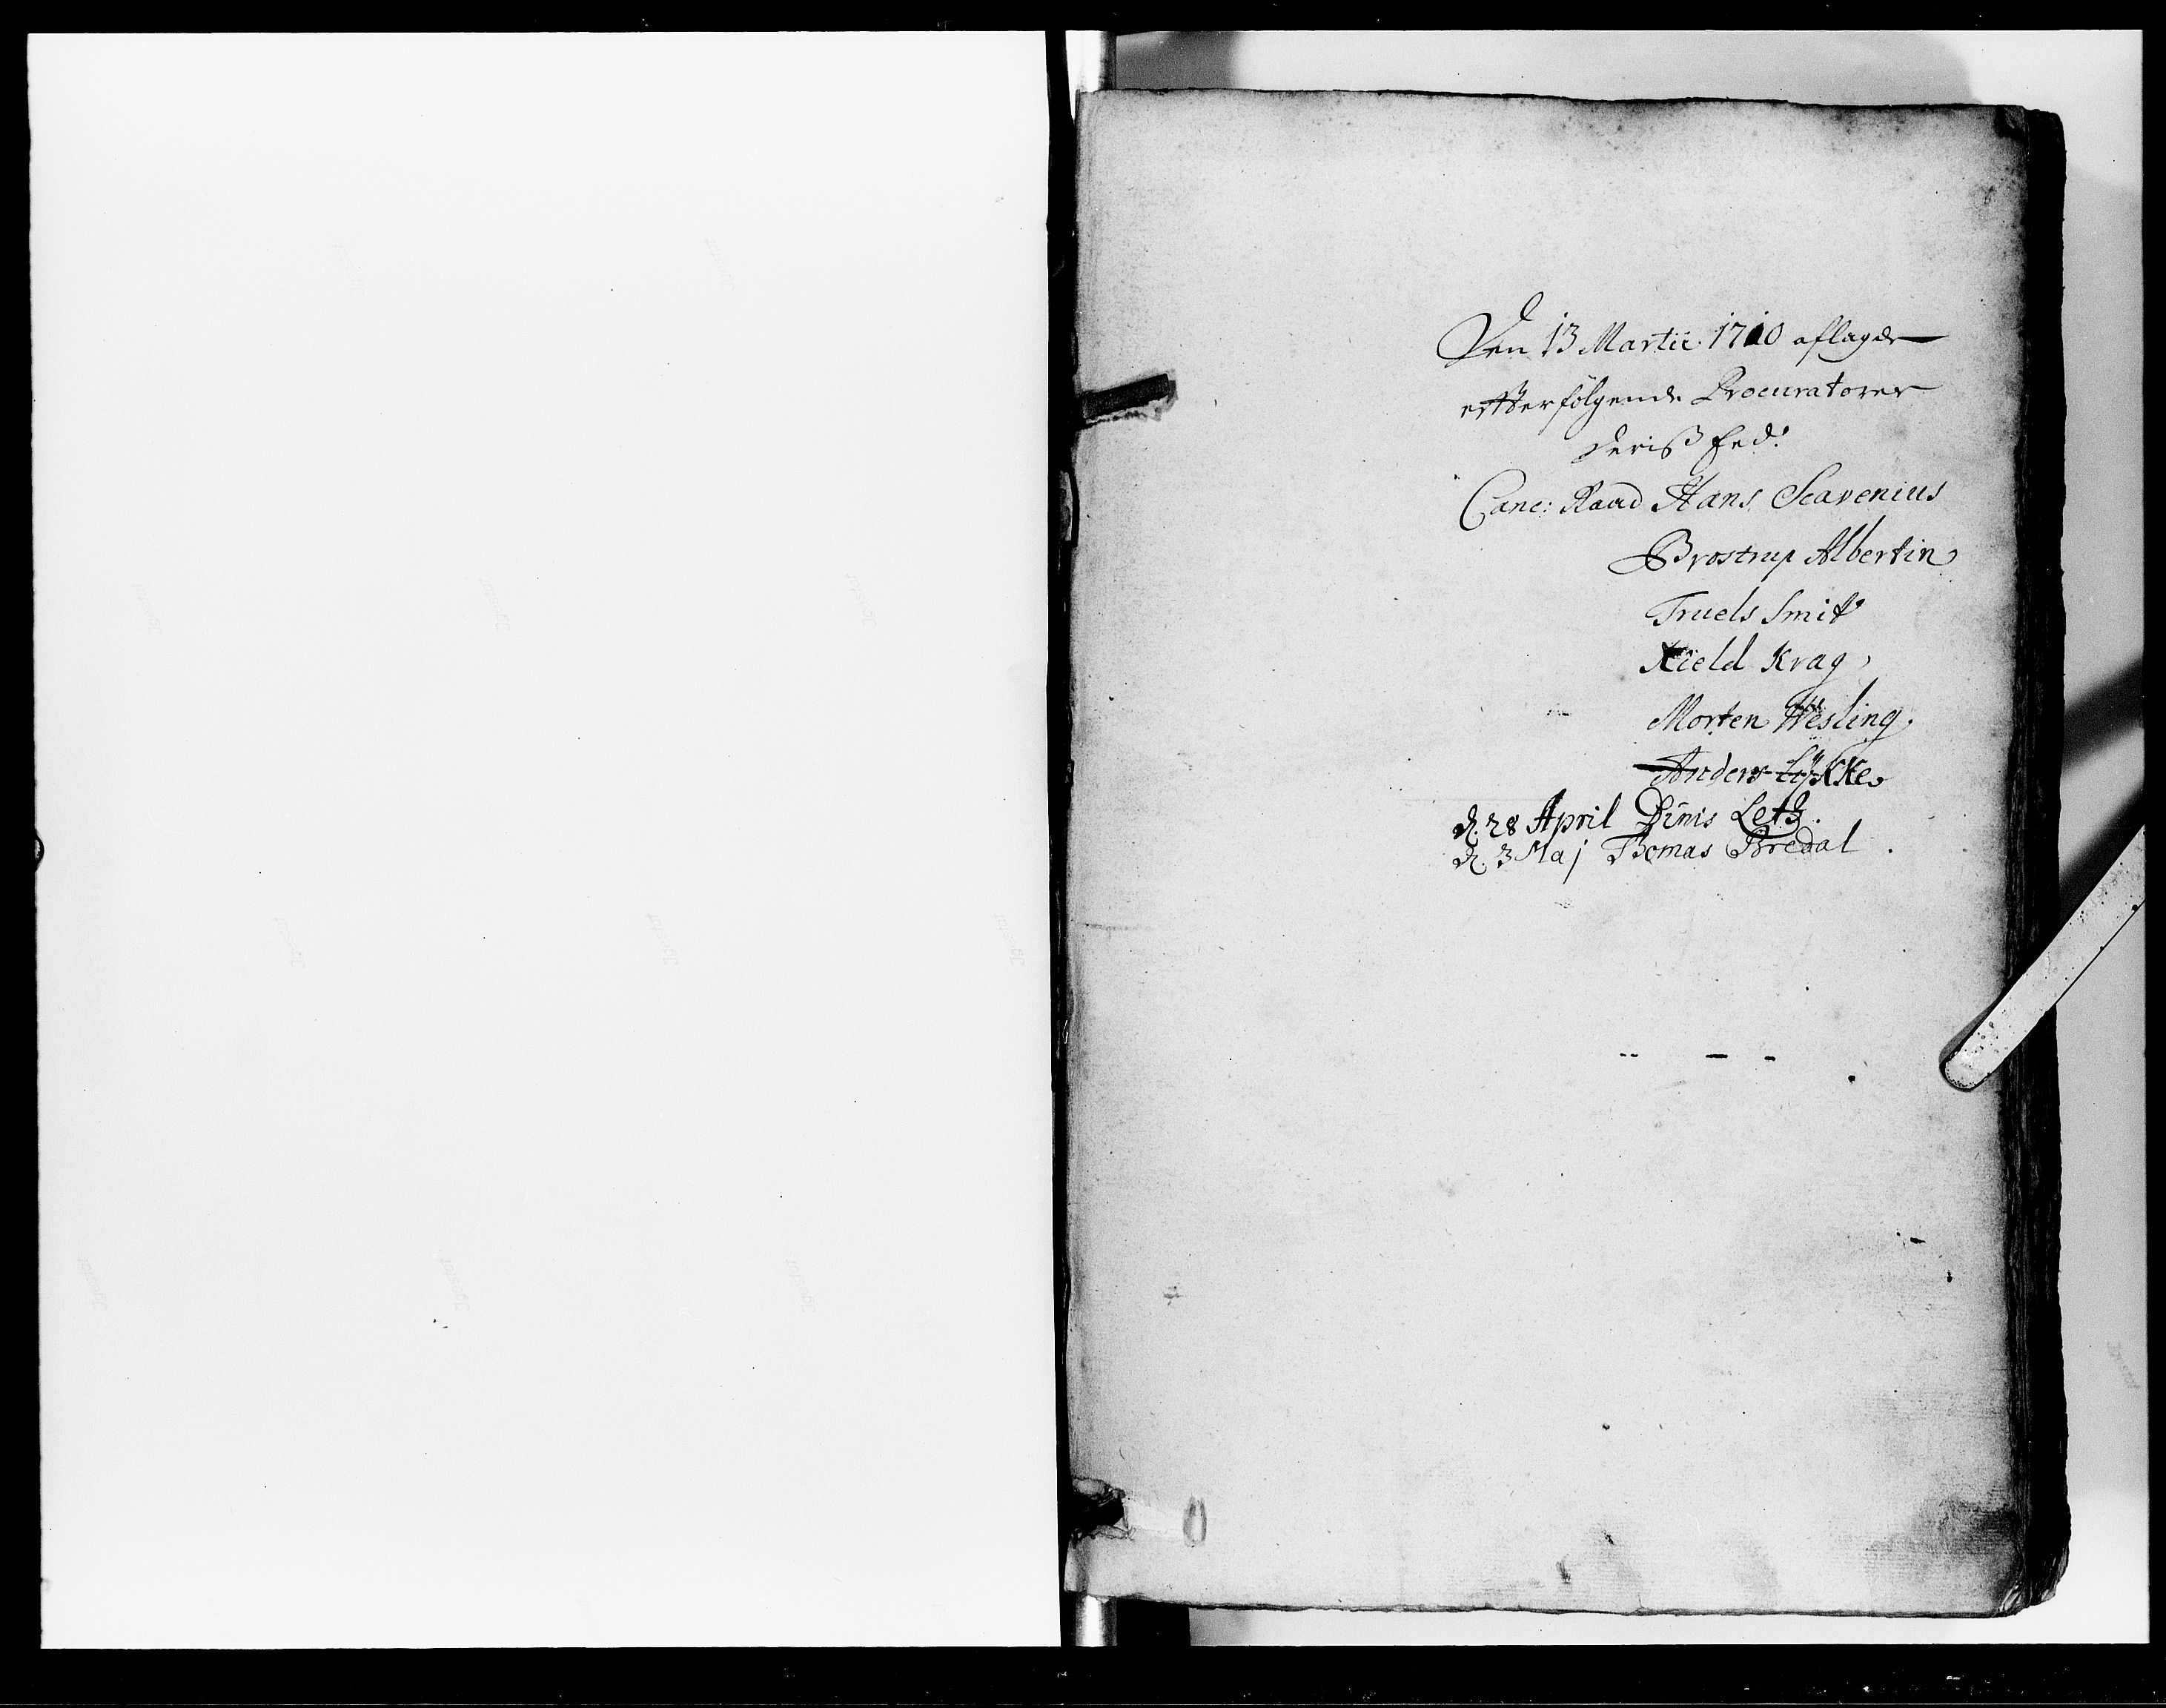 Den 13 Martii 1710 aflagde
effterfölgende Procuratorer
deriß Eed:
Canc: Raad Hans Scavenius
Brostrup Albertin
Truels Smit
Kield Krag
Morten Wesling.
Anders Lÿkke
d. 28 April Dinis Letz.
d. 3 Maj Thomas Bredal.